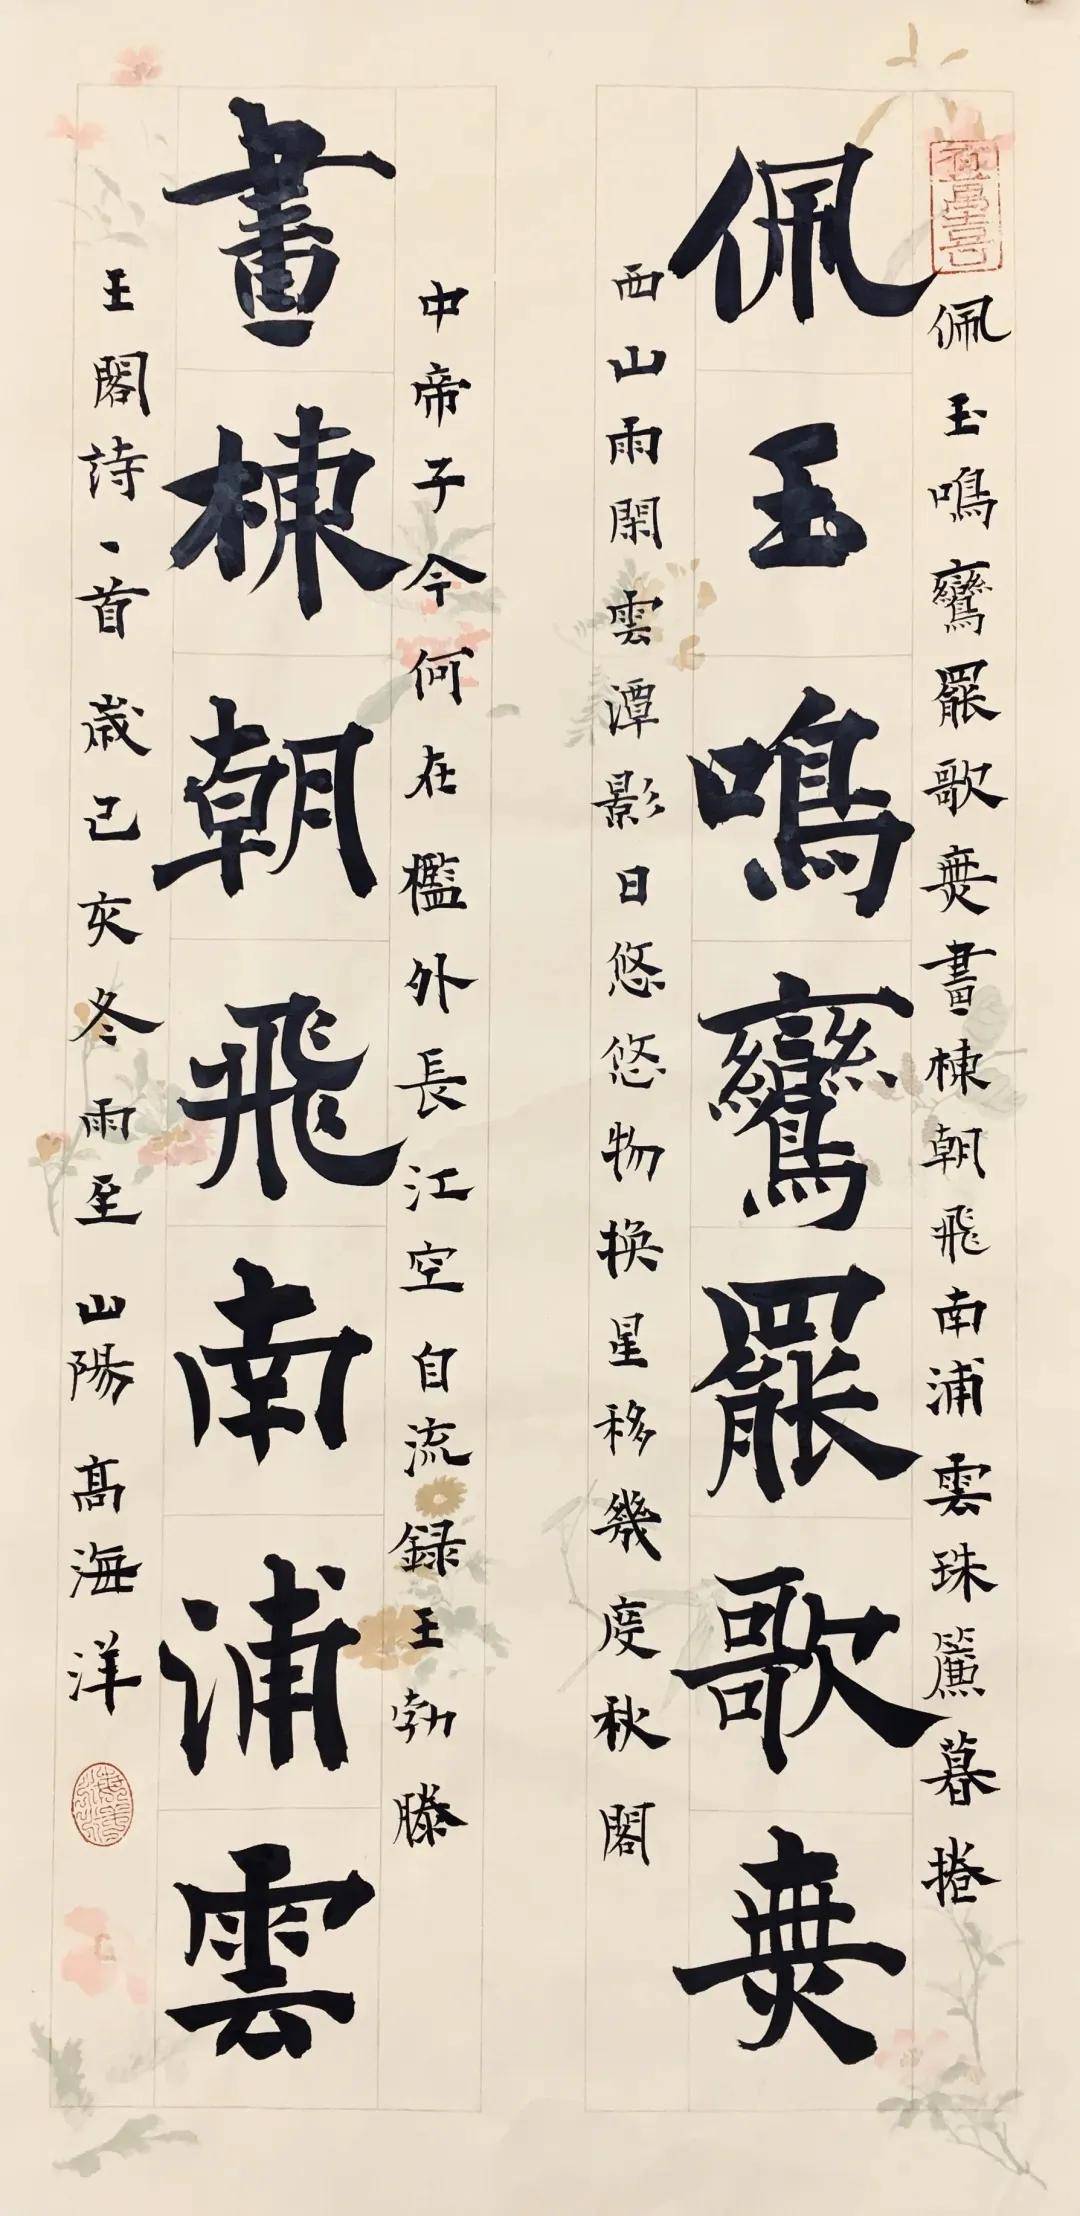 佩玉鳴鸞罷歌舞畫棟朝飛南浦雲珠簾暮捲
佩玉鳴鸞罷歌舞
西山雨閑雲潭影日悠悠物換星移幾度秋閣
中帝子今何在檻外長江空自流録王勃滕
畫棟朝飛南浦雲
王閣詩一首 歲己亥冬雨至 山陽 高海洋